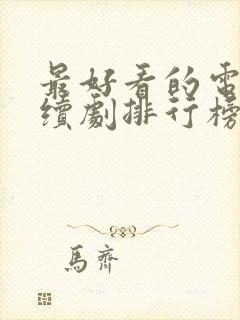 最好看的電
續劇排行榜
馬齊